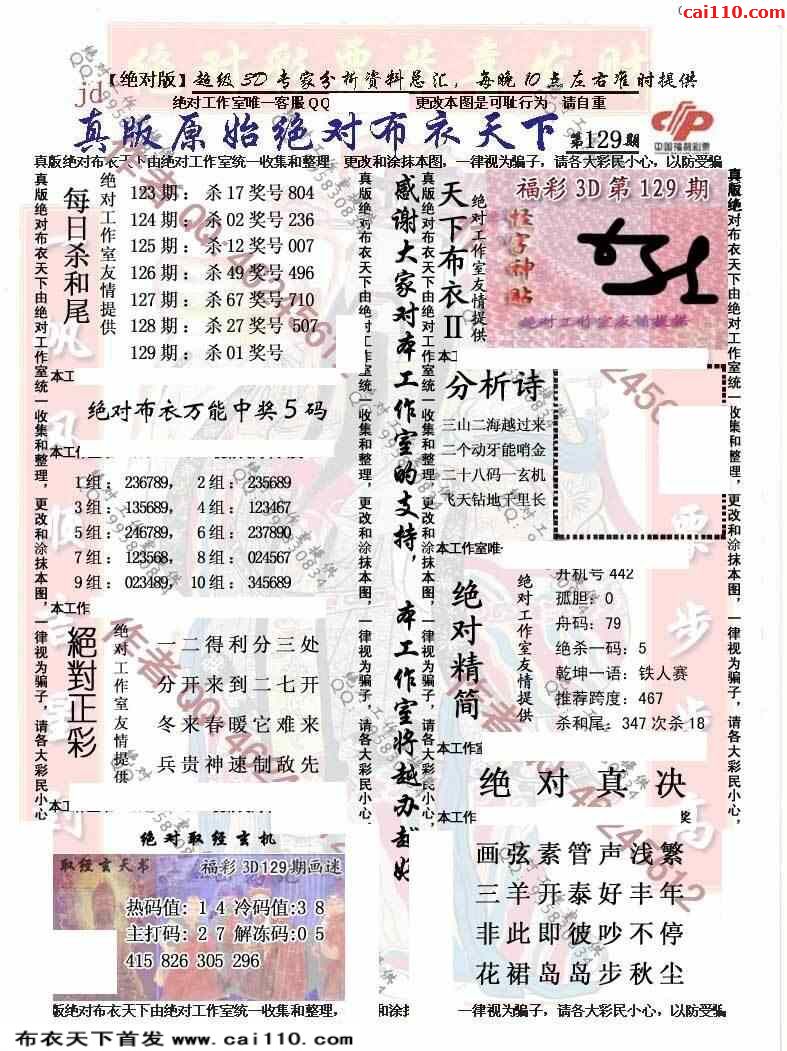 cai110.com
【绝对版】超级3D专家分析资料总汇，每晚10点左右准时提供
jd
绝对工作室唯一客服QQ
更改本图是可耻行为 请自重
真版原始绝对布衣天下
第129期
中国福利彩票
真版绝对布衣天下由绝对工作室统一收集和整理
更改和涂抹本图，一律视为骗子，请各大彩民小心，以防受骗
真版绝对布衣天下由绝对工作室统一收集和整理，更改和涂抹本图，一律视为骗子，请各大彩民小心，
每日杀和尾
绝对工作室友情提供
123期：杀17奖号804
124期：杀02奖号236
125期：杀12奖号007
126期：杀49奖号496
127期：杀67奖号710
128期：杀27奖号507
129期：杀01奖号
本工
绝对布衣万能中奖5码
本工
1组：236789， 2组：235689
3组：135689， 4组：123467
5组：246789， 6组：237890
7组：123568， 8组：024567
9组：023489， 10组：345689
本工作
絕對正彩
绝对工作室友情提供
一二得利分三处
分开来到二七开
冬来春暖它难来
兵贵神速制敌先
本工
绝对取经玄机
取经玄天书
福彩3D129期画迷
热码值：14冷码值:38
主打码：27解冻码:05
415 826 305 296
真版绝对布衣天下由绝对工作室统一收集和整理，更改和涂抹本图，一律视为骗子，请各大彩民小心，
感谢大家对本工作室的支持，本工作室将越办越好
真版绝对布衣天下由绝对工作室统一收集和整理，更改和涂抹本图，一律视为骗子，请各大彩民小心，
天下布衣II
绝对工作室友情提供
福彩3D第129期
怪字神贴
绝对工作室友情提供
本工
分析诗
三山二海越过来
二个动牙能哨金
二十八码一玄机
飞天钻地千里长
本工作室唯
绝对精简
绝对工作室友情提供
开机号442
孤胆：0
舟码：79
绝杀一码：5
乾坤一语：铁人赛
推荐跨度：467
杀和尾：347次杀18
本工作室
绝对真决
本工作
奖
画弦素管声浅繁
三羊开泰好丰年
非此即彼吵不停
花裙岛岛步秋尘
真版绝对布衣天下由绝对工作室统一收集和整理，更改和涂抹本图，一律视为骗子，请各大彩民小心，
版绝对布衣天下由绝对工作室统一收集和整理，
和涂
一律视为骗子，请各大彩民小心，以防受骗
布衣天下首发 www.cai110.com